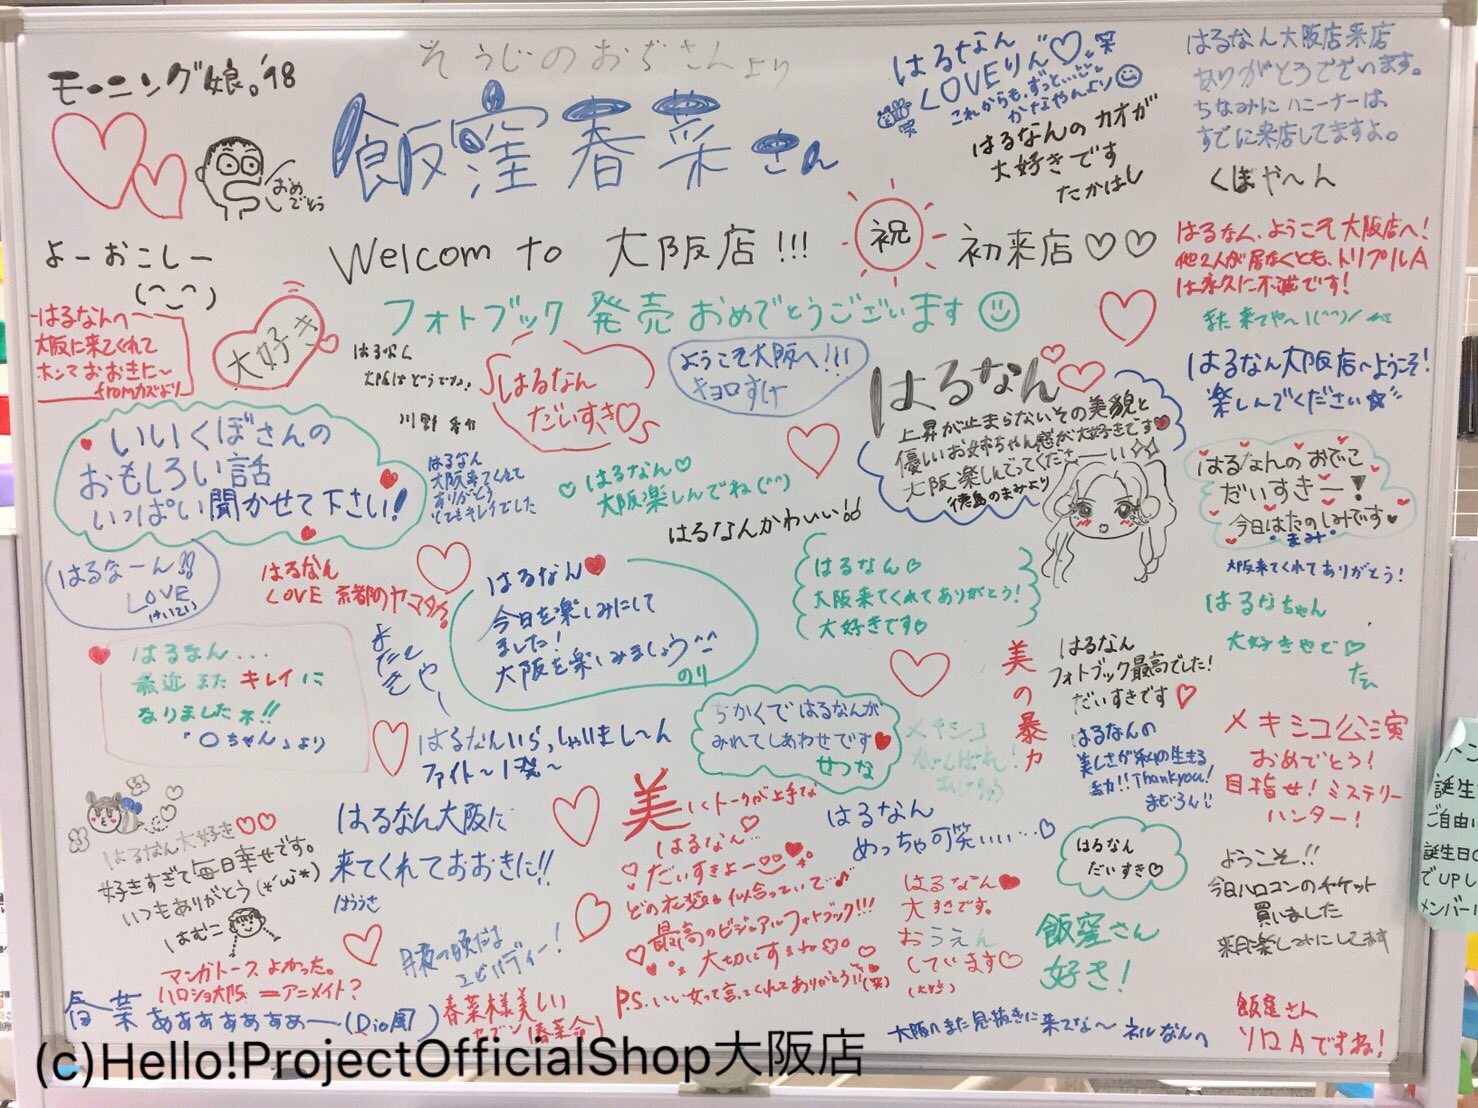 そうじのおぢさんより
モーニング娘。'18
飯窪春菜さん
おめでとう
はるなん
LOVEりん♡笑
これからも、ずっと
かなやんより
はるなんのカオが
大好きです
たかはし
はるなん大阪店来店
ありがとうございます。
ちなみにハニーナーは、
すでに来店してますよ。
くぼや〜ん
よーおこしー
(^_^)
Welcom to 大阪店!!!
祝
初来店♡♡
はるなん、ようこそ大阪店へ!
他2人が居なくとも、トリプルA
は永久に不滅です!
また来てや〜!(^^)/
フォトブック発売おめでとうございます
はるなんへ
大阪に来てくれて
ホンマおおきに〜
fromカズより
大好き
はるなん
大阪はどうですか?
はるなん
だいすき♡
ようこそ大阪へ!!!
キョロすけ
はるなん
上昇が止まらないその美貌と
優しいお姉ちゃん感が大好きです
大阪楽しんでってくださーーい
徳島のまみより
はるなん大阪店へようこそ!
楽しんでください☆
いいくぼさんの
おもしろい話
いっぱい聞かせて下さい!
はるなん
大阪来てくれて
ありがとう
とてもキレイでした
はるなん♡
大阪楽しんでね(^^)
はるなんかわいい!!
はるなんのおでこ
だいすきー!
今日はたのしみです♥
まみ
大阪来てくれてありがとう!
はるなーん!!
LOVE
はるなん
LOVE 京都のヤマタク
はるなん♥
今日を楽しみにして
ました!
大阪を楽しみましょう^^
のり
はるなん♡
大阪来てくれてありがとう!
大好きです♡
はるなちゃん
大好きやで♡
はるなん...
最近またキレイに
なりましたネ!!
「○ちゃん」より
まだしきや〜
はるなんいらっしゃいまし〜ん
ファイト〜1発〜
ちかくではるなんが
みれてしあわせです♥
せつな
メキシコ
がんばれ!
美の暴力
はるなん
フォトブック最高でした!
だいすきです♡
はるなんの
美しさが私の生きる
活力!!Thankyou!
まどろん
メキシコ公演
おめでとう!
目指せ!ミステリー
ハンター!
はるなん大好き♡♡
好きすぎて毎日幸せです。
いつもありがとう(*´ω`*)
はむこ
はるなん大阪に
来てくれておおきに!!
はううさ
美しくトークが上手な
はるなん♡
だいすきよー♡♡
どの衣装も似合っていて...♪
最高のビジュアルフォトブック!!!
大切にするね
P.S.いい女って言ってくれてありがとう!!(笑)
はるなん
めっちゃ可笑いい...♡
はるなん
だいすき♡
はるなん♥
大すきです。
おうえん
しています♡
飯窪さん
好き!
ようこそ!!
今日ハロコンのチケット
買いました
来月楽しみにしてます
マンガトークよかった。
ハロショ大阪=アニメイト?
エビバディー!
春菜ああああああああー(Dio風)
春菜様美しい
セブン(春菜命)
大阪へまた息抜きに来てな〜
飯窪さん
ソロAですね!
誕生
ご自由に
誕生日の
でUPし
メンバー
(c)Hello!ProjectOfficialShop大阪店